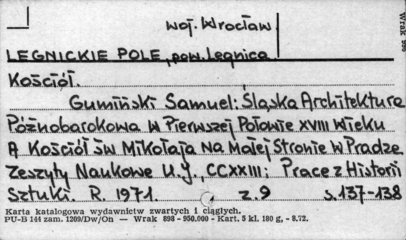 woj. Wrocław
LEGNICKIE POLE, pow. Legnica.
Kościół.
Gumiński Samuel: Śląska Architektura
Późnobarokowa w Pierwszej Połowie XVIII wieku
A Kościół św Mikołaja na Małej Stronie w Pradze.
Zeszyty Naukowe U.J., CCXXIII; Prace z Historii
Sztuki. R. 1971. z.9 s.137-138
Karta katalogowa wydawnictw zwartych i ciągłych.
PU-B 144 zam. 1209/Dw/On — Wrak 898 - 950.000 - Kart. 5 kl. 180 g, - 8.72.